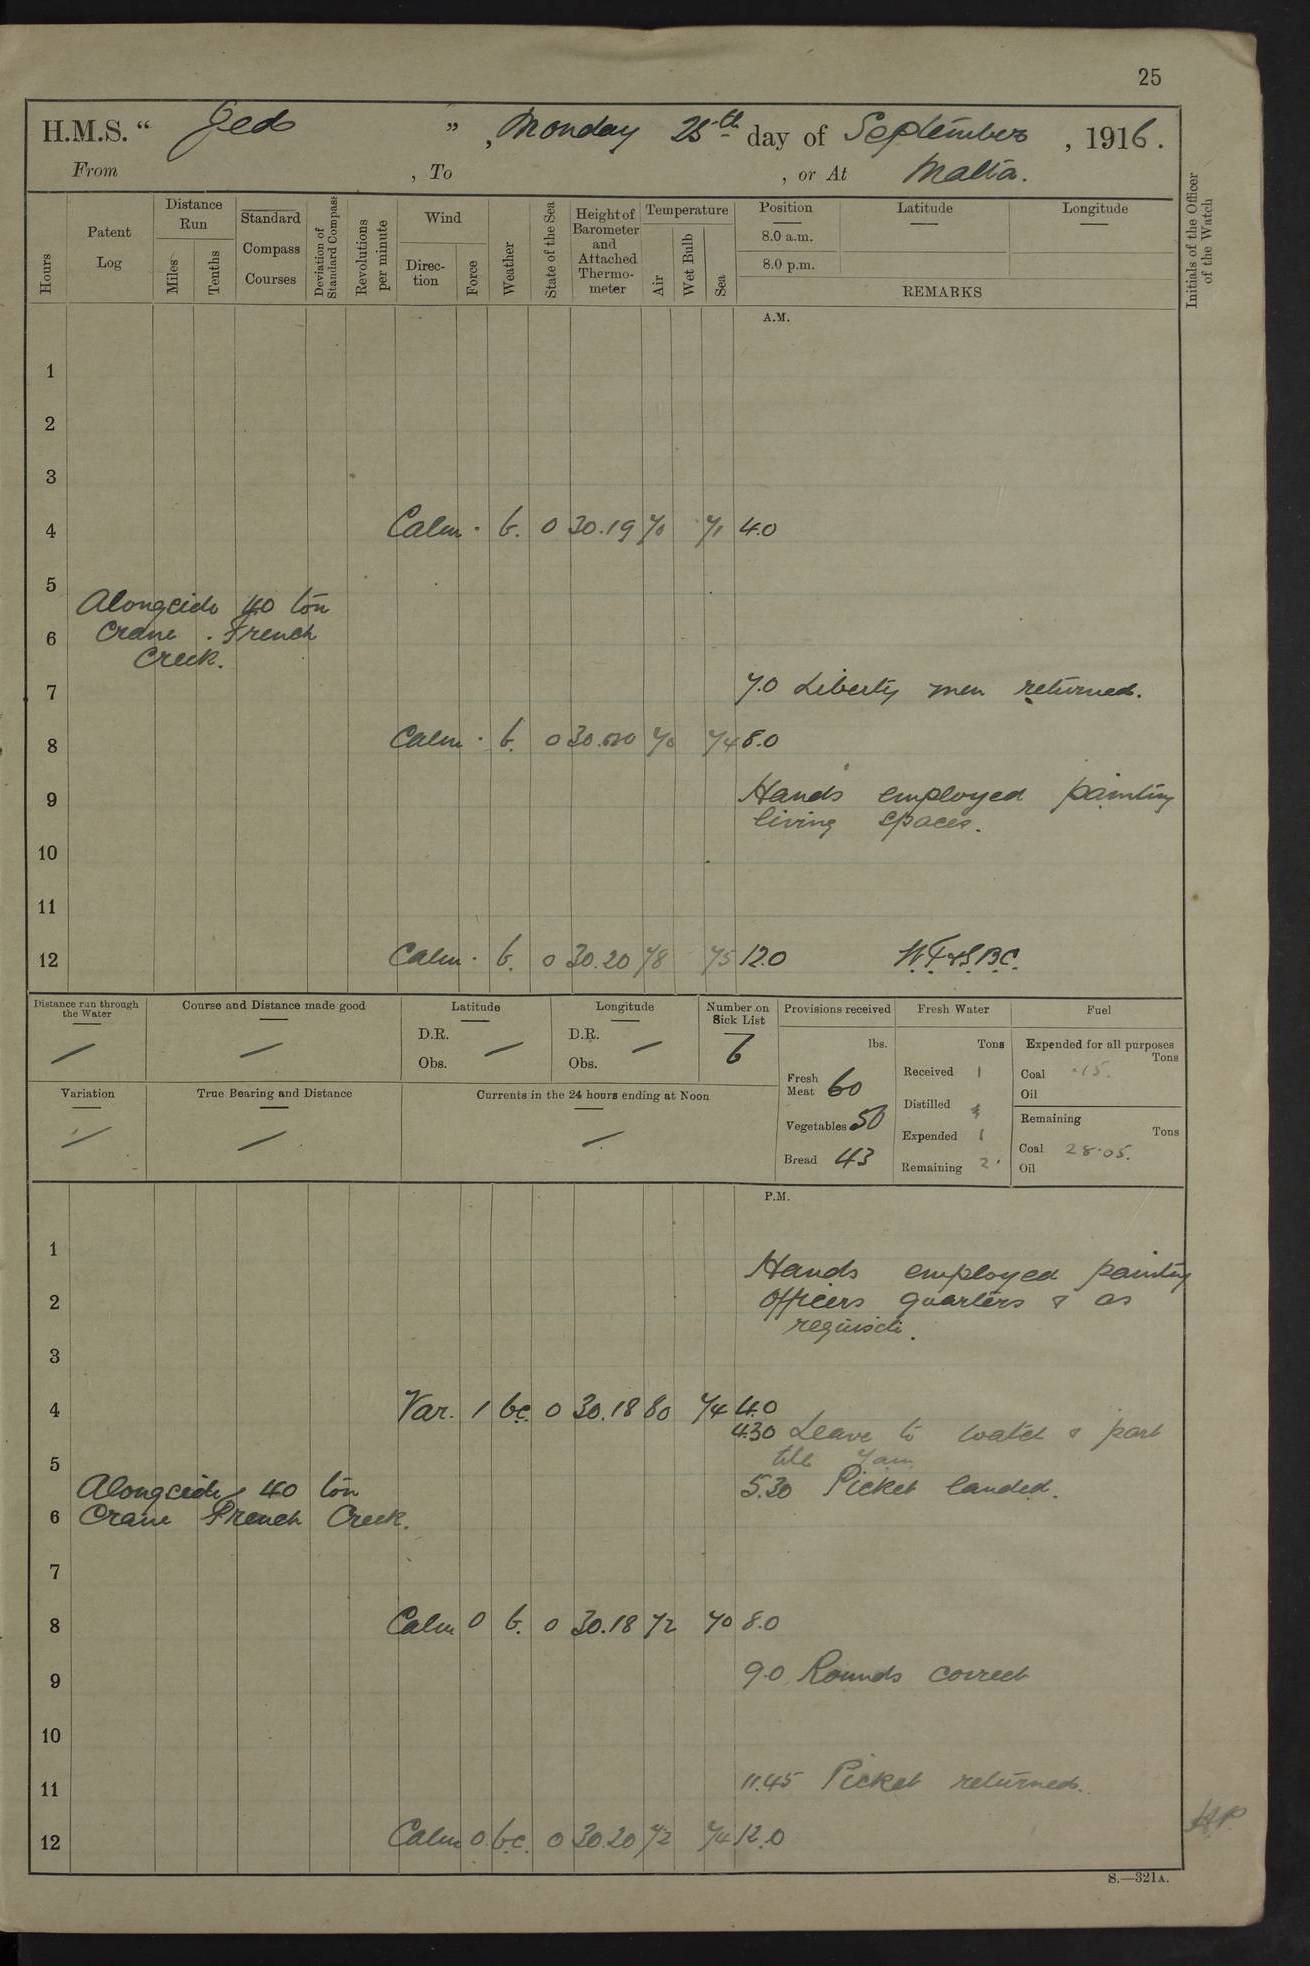 25
H.M.S. “ Jed ” , Monday 25th day of September , 1916.
From , To , or At Malta.
Hours
Patent Log
Distance Run
Miles
Tenths
Standard Compass Courses
Deviation of Standard Compass
Revolutions per minute
Wind
Direction
Force
Weather
State of the Sea
Height of Barometer and Attached Thermo-meter
Temperature
Air
Wet Bulb
Sea
Position
8.0 a.m.
8.0 p.m.
Latitude
Longitude
REMARKS
Initials of the Officer of the Watch
A.M.
1
2
3
4 Calm · b. 0 30.19 70 71 4.0
5
Alongside 40 ton
6 Crane . French
Creek.
7 7.0 Liberty men returned.
8 Calm · b. 0 30.20 70 74 8.0
9 Hands employed painting
living spaces.
10
11
12 Calm · b. 0 30.20 78 75 12.0
Distance run through the Water
Course and Distance made good
Latitude
D.R.
Obs.
Longitude
D.R.
Obs.
Number on Sick List
6
Provisions received
lbs.
Fresh Meat 60
Vegetables 50
Bread 43
Fresh Water
Tons
Received 1
Distilled
Expended 1
Remaining 2
Fuel
Expended for all purposes
Tons
Coal ·15.
Oil
Remaining
Tons
Coal 28·05.
Oil
Variation
True Bearing and Distance
Currents in the 24 hours ending at Noon
P.M.
1
Hands employed painting
2 Officers quarters & as
requisite.
3
4 Var. 1 bc. 0 30.18 80 74 4.0
4.30 Leave to watch & part
till 7am
5
Alongside 40 ton 5.30 Picket landed.
6 Crane French Creek.
7
8 Calm 0 b. 0 30.18 72 70 8.0
9 9.0 Rounds correct
10
11 11.45 Picket returned.
12 Calm 0 bc. 0 30.20 72 74 12.0
S.—321A.